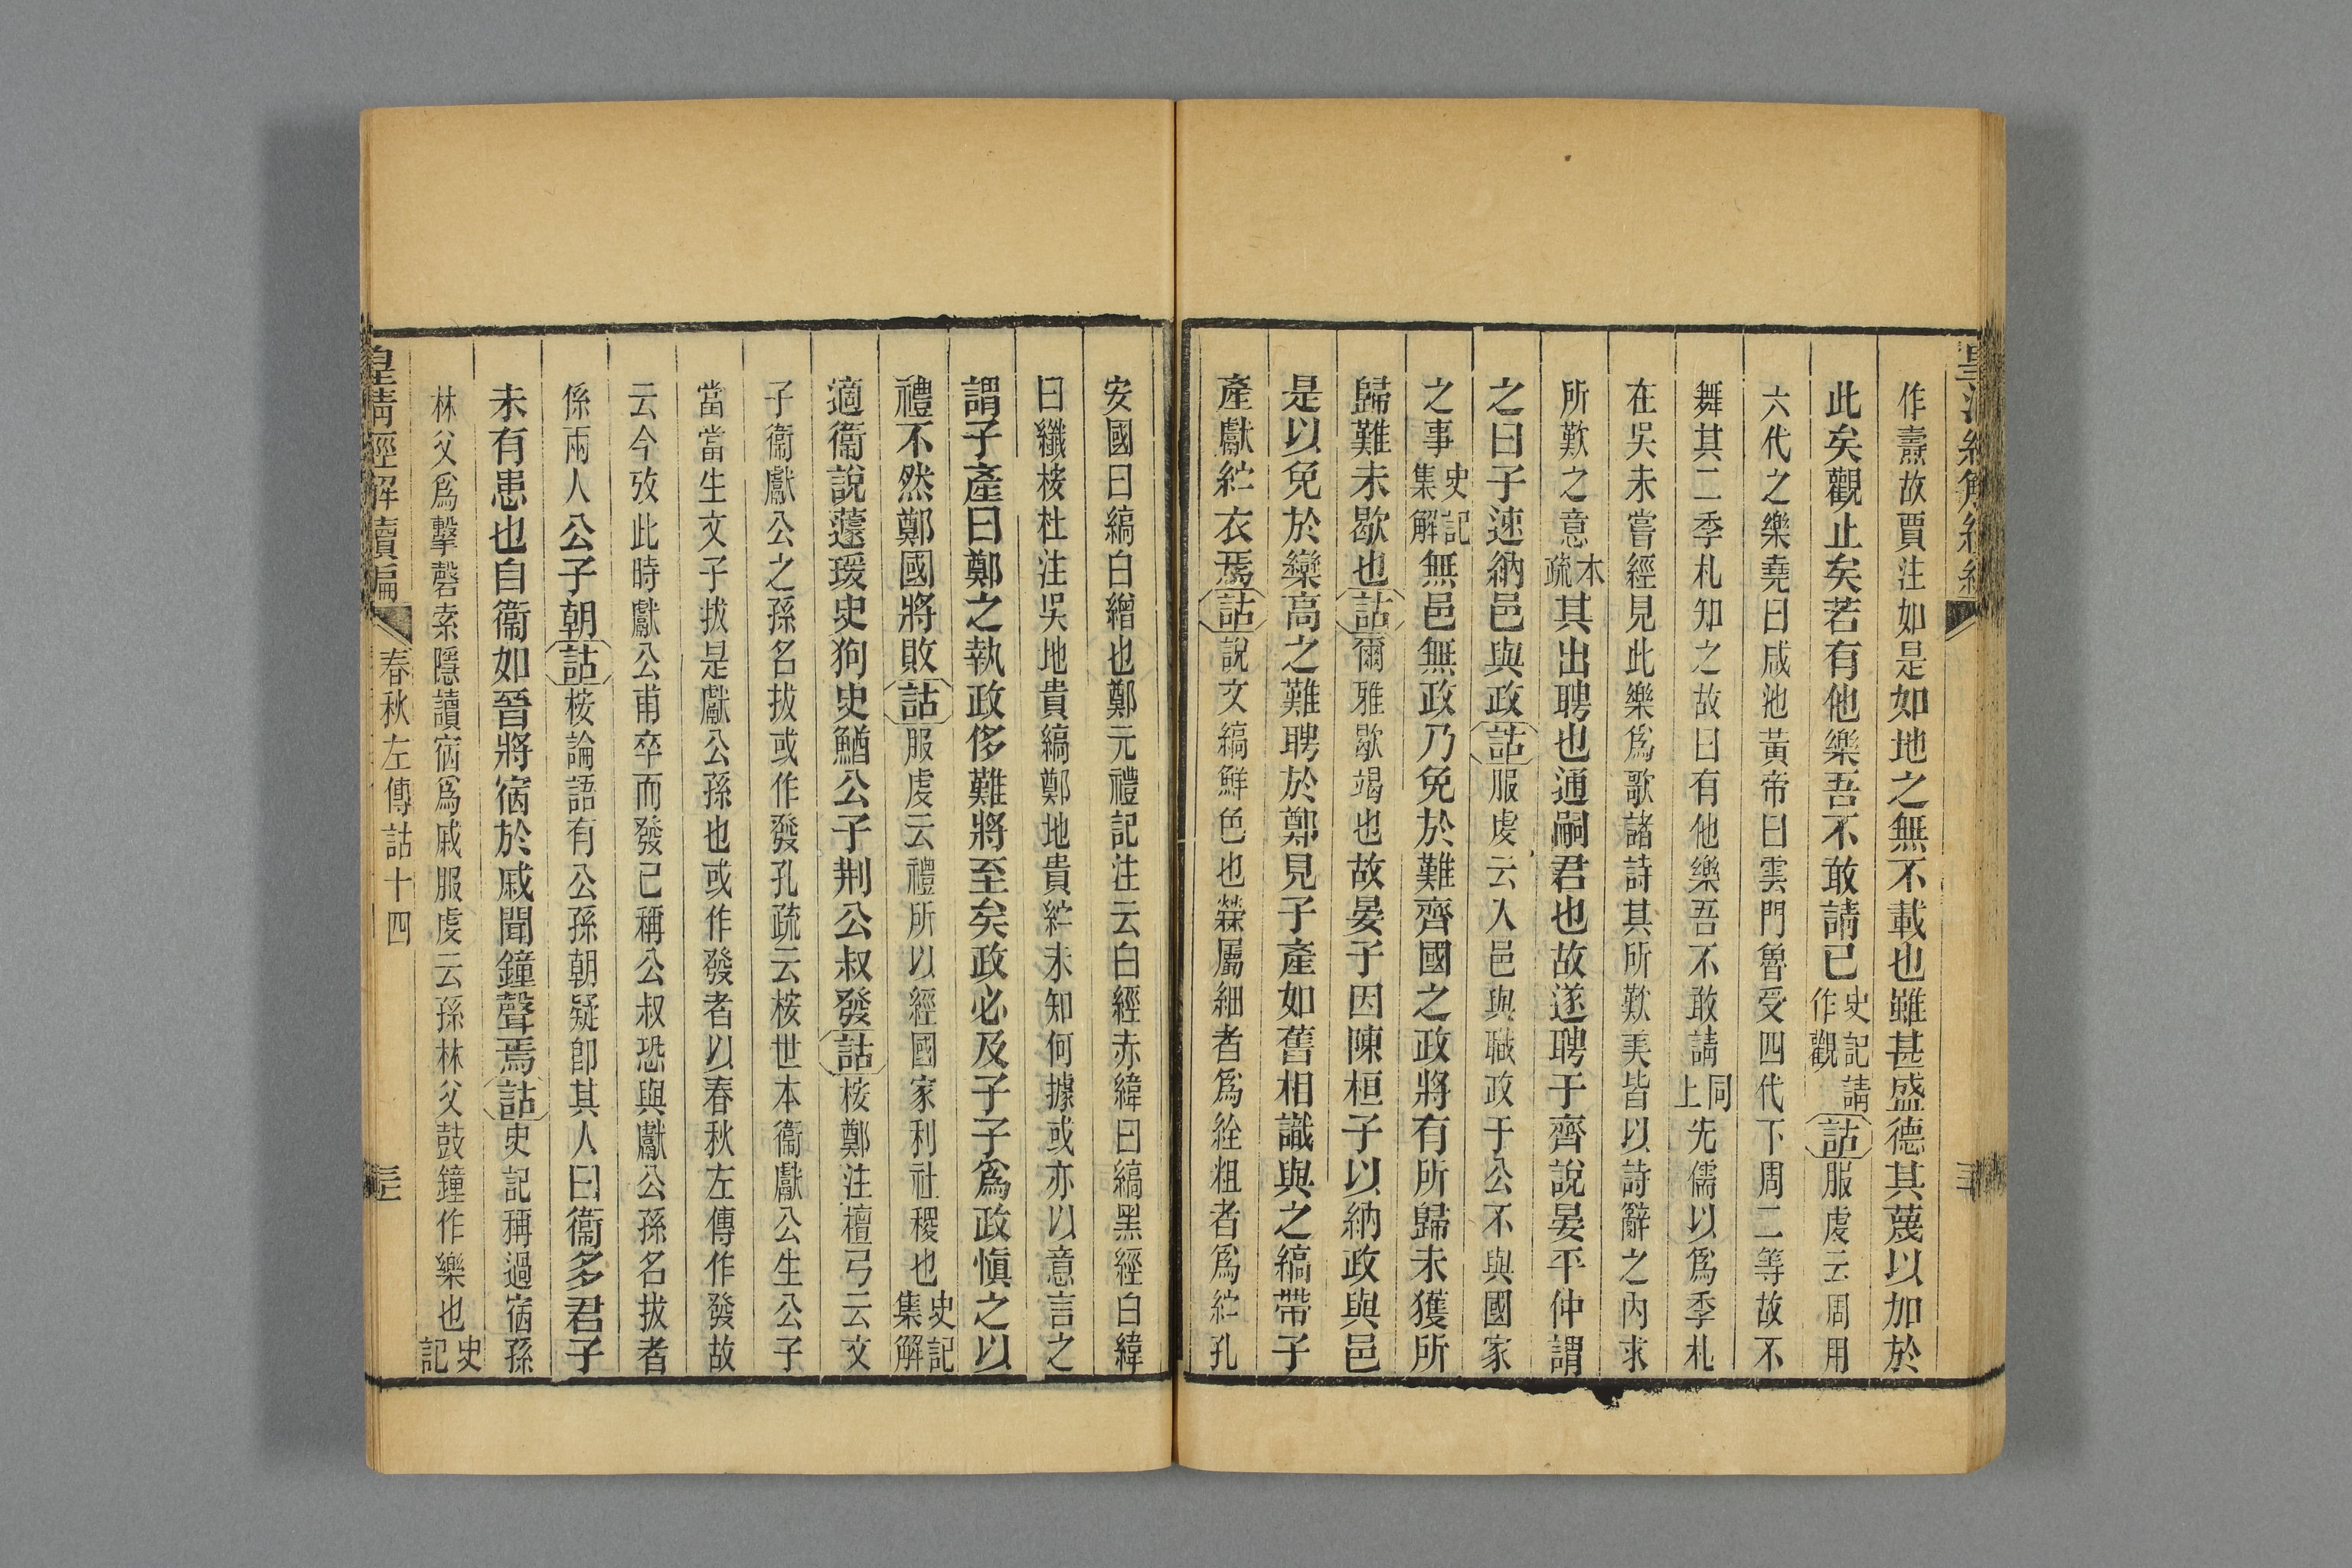 作燾故賈注如是如地之無不載也雖甚盛德其蔑以加於
此矣觀止矣若有他樂吾不敢請已史記請作觀詁服虔云周用
六代之樂堯曰咸池黃帝曰雲門魯受四代下周二等故不
舞其二季札知之故曰有他樂吾不敢請同上先儒以爲季札
在吳未嘗經見此樂爲歌諸詩其所歎美皆以詩辭之內求
所歎之意本疏其出聘也通嗣君也故遂聘于齊說晏平仲謂
之曰子速納邑與政詁服虔云入邑與職政于公不與國家
之事史記集解無邑無政乃免於難齊國之政將有所歸未獲所
歸難未歇也詁爾雅歇竭也故晏子因陳桓子以納政與邑
是以免於欒高之難聘於鄭見子產如舊相識與之縞帶子
產獻紵衣焉詁說文縞鮮色也䋾屬細者爲絟粗者爲紵孔
安國曰縞白繒也鄭元禮記注云白經赤緯曰縞黑經白緯
曰纖桉杜注吳地貴縞鄭地貴紵未知何據或亦以意言之
謂子產曰鄭之執政侈難將至矣政必及子子爲政愼之以
禮不然鄭國將敗詁服虔云禮所以經國家利社稷也史記集解
適衞說蘧瑗史狗史鰌公子荆公叔發詁桉鄭注檀弓云文
子衞獻公之孫名拔或作發孔疏云桉世本衞獻公生公子
當當生文子拔是獻公孫也或作發者以春秋左傳作發故
云今攷此時獻公甫卒而發已稱公叔恐與獻公孫名拔者
係兩人公子朝詁桉論語有公孫朝疑卽其人曰衞多君子
未有患也自衞如晉將宿於戚聞鐘聲焉詁史記稱過宿孫
林父爲擊磬索隱讀宿爲戚服虔云孫林父鼓鐘作樂也史記
皇淸經解續編
春秋左傳詁十四